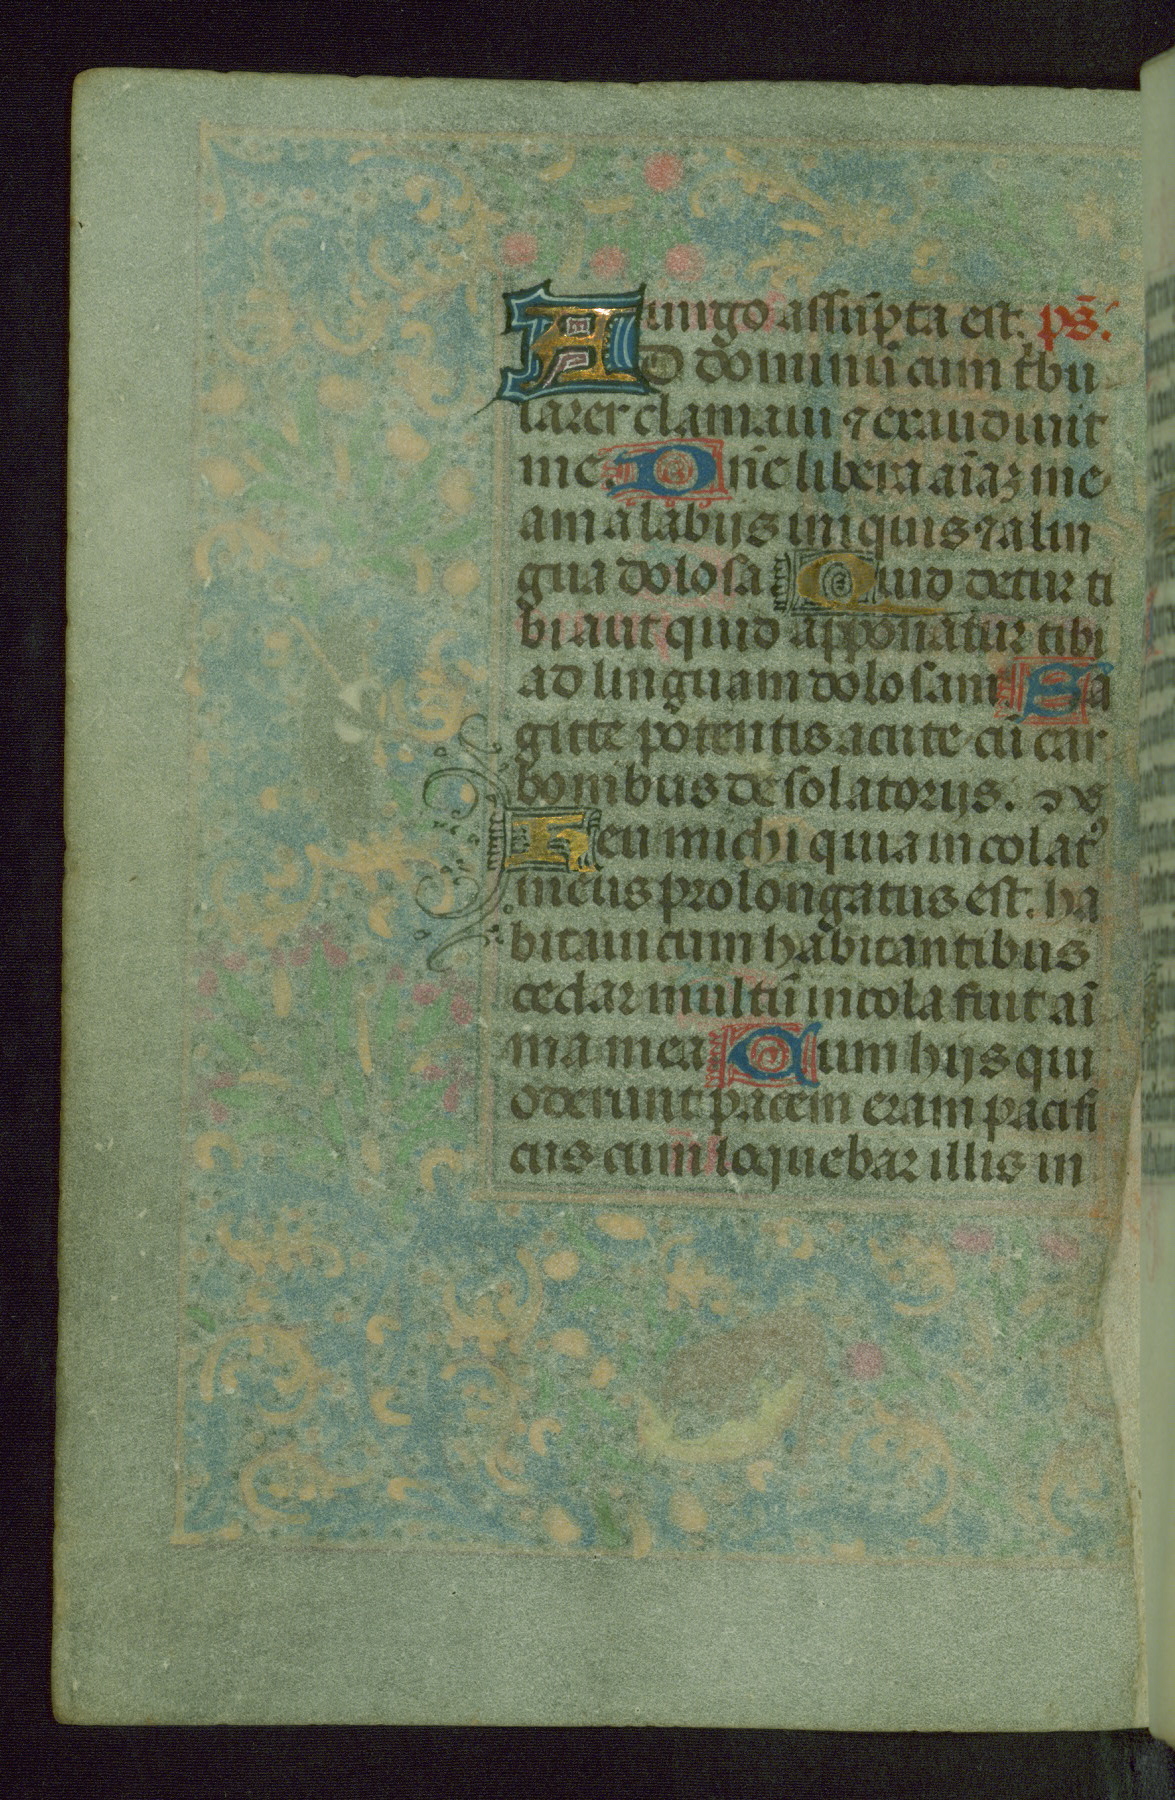 uirgo assūpta est. ps̄.
AD dominū cum t̄bu
larer clamaui ⁊ exaudiuit
me. Dn̄e libera aīaʒ me
am a labijs iniquis ⁊ a lin
gua dolosa Quid detur ti
bi aut quid apponatur tibi
ad linguam dolosam Sa
gitte potentis acute cū car
bonibus desolatorijs.
Heu michi quia incolatꝰ
meus prolongatus est. ha
bitaui cum habitantibus
cedar multū incola fuit aī
ma mea Cum hijs qui
oderunt pacem eram pacifi
cus cum loquebar illis in